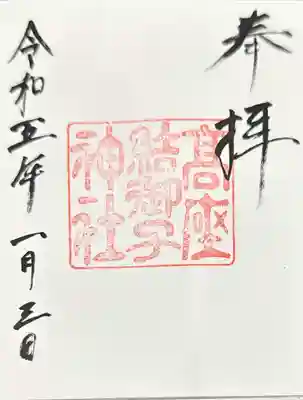 奉拝
高座
結御子
神社
令和五年
一月三日